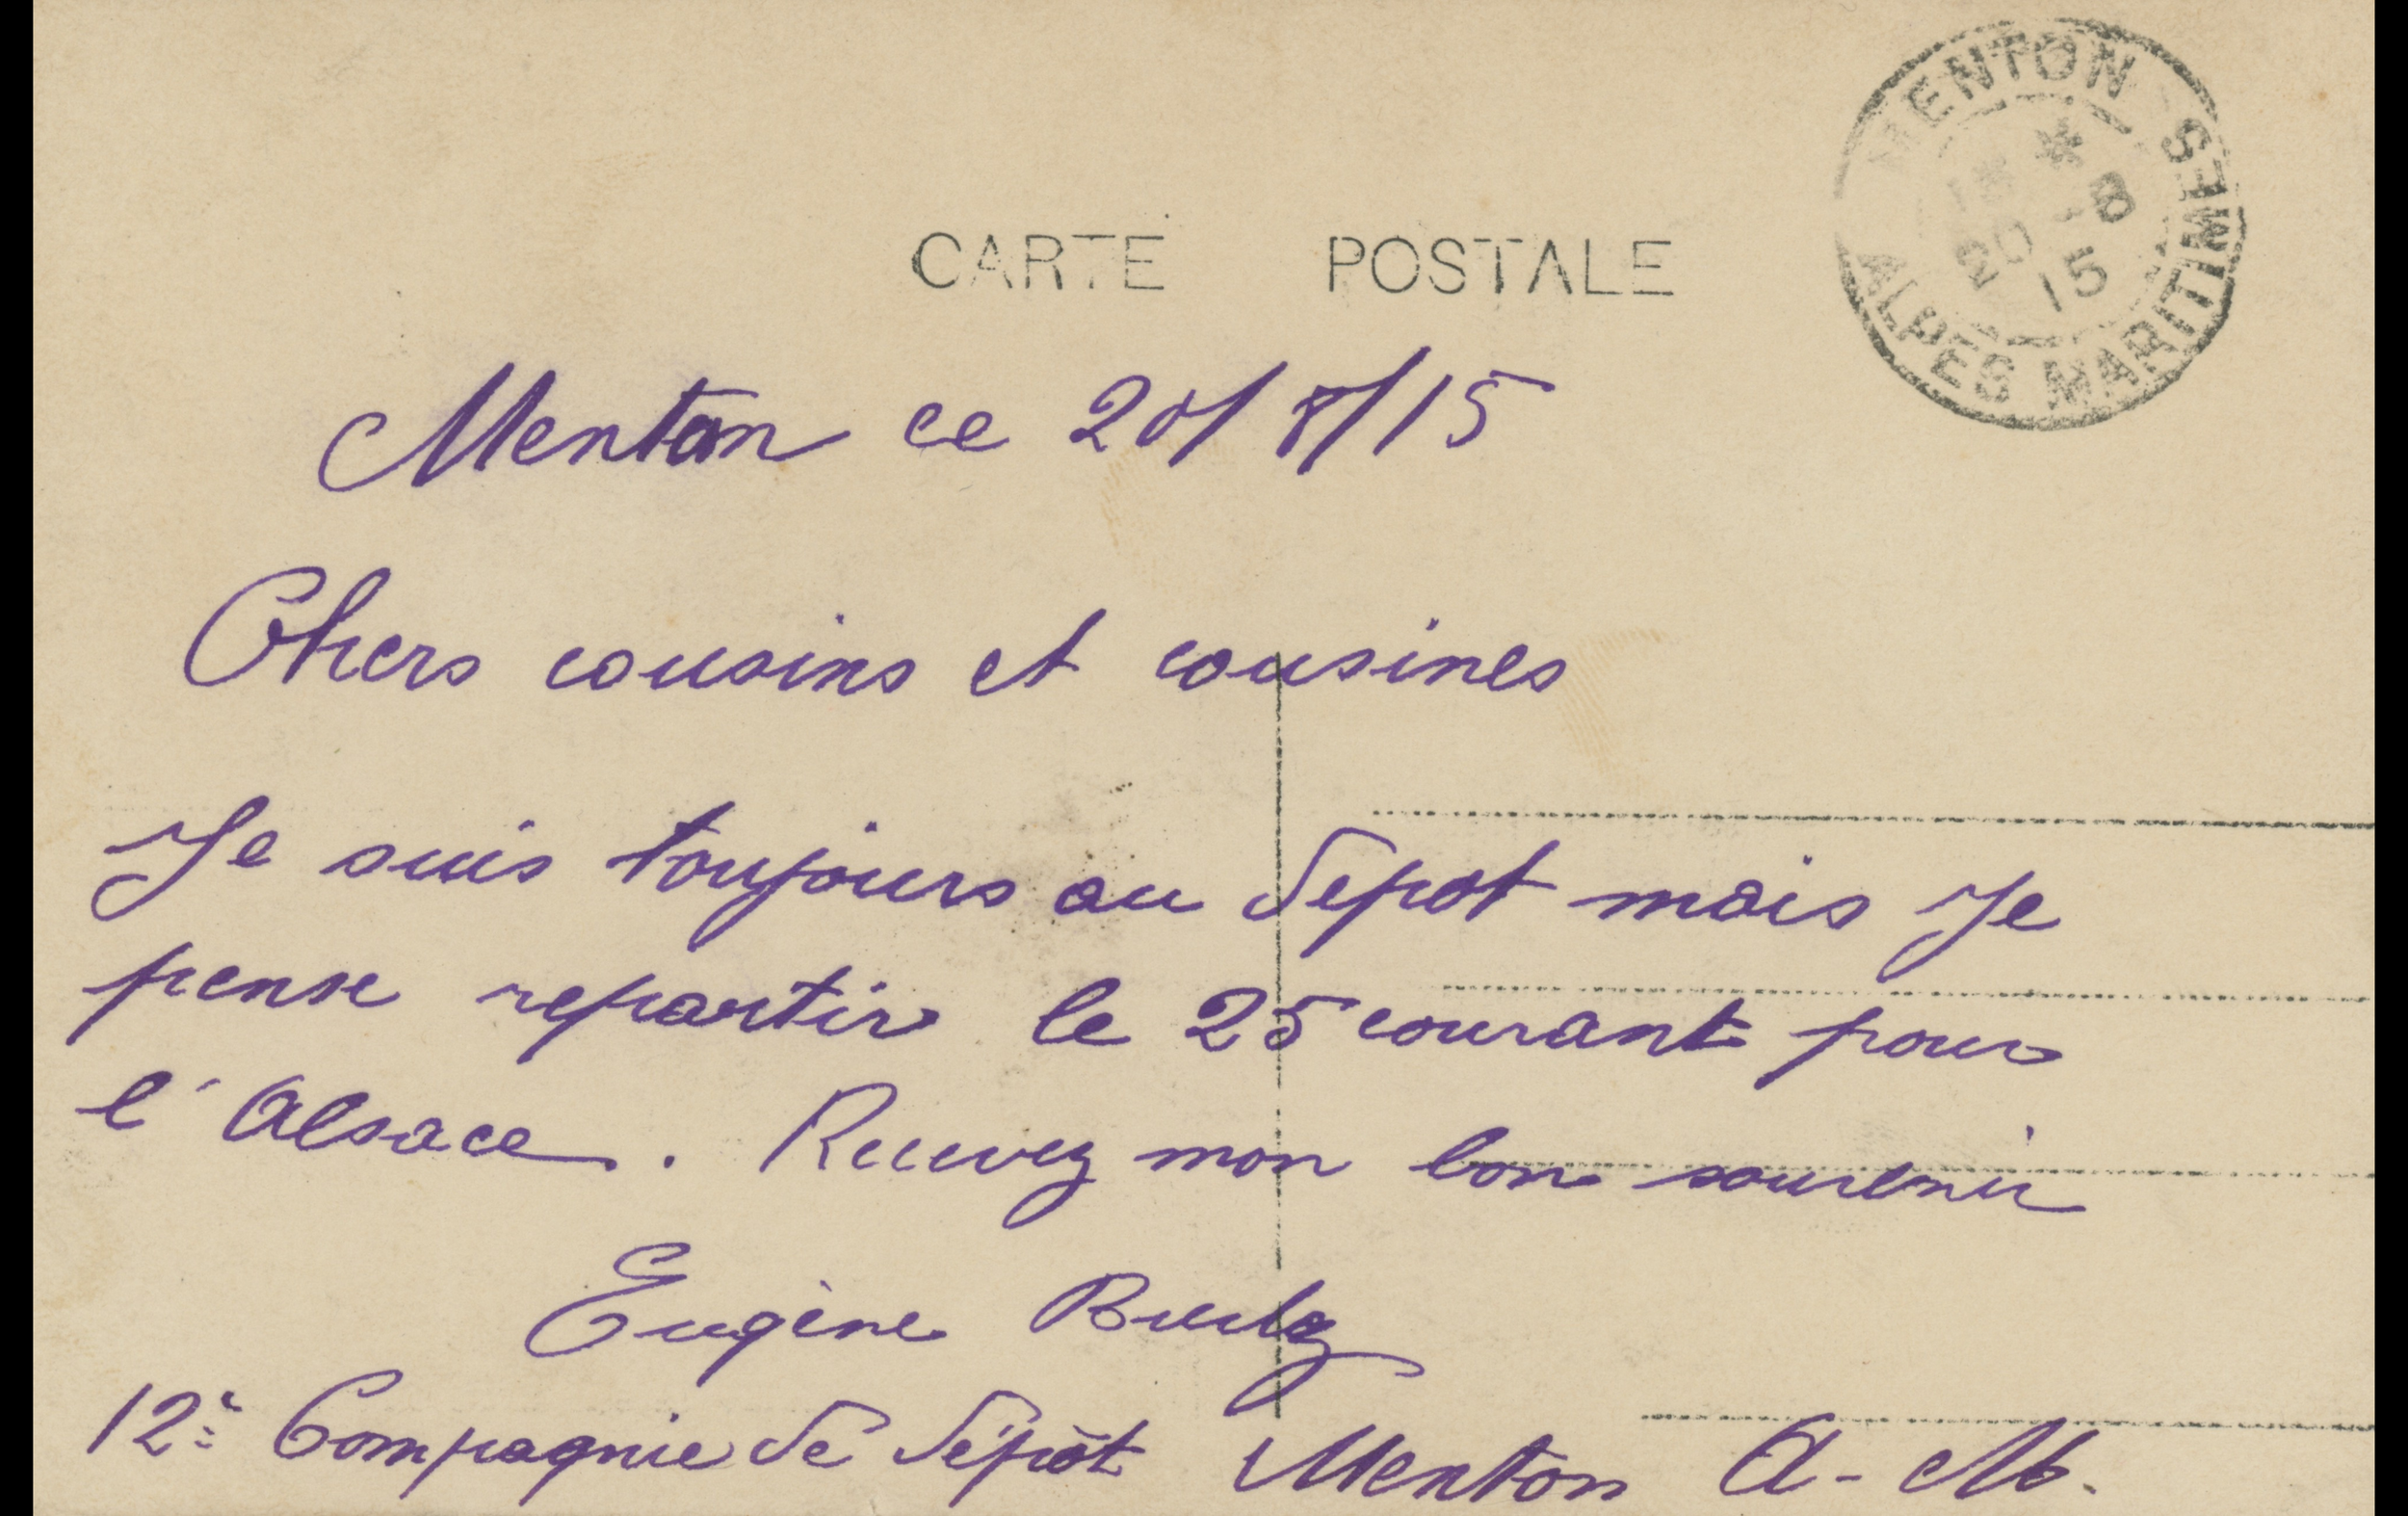 MENTON
*
20 -8
15
ALPES MARITIMES
CARTE POSTALE
Menton ce 20/8/15
Chers cousins et cousines
Je suis toujours au depot mais Je
pense repartir le 25 courant pour
l'Alsace. Recevez mon bon souvenir
Eugène
12e Compagnie de dépôt Menton A-M.